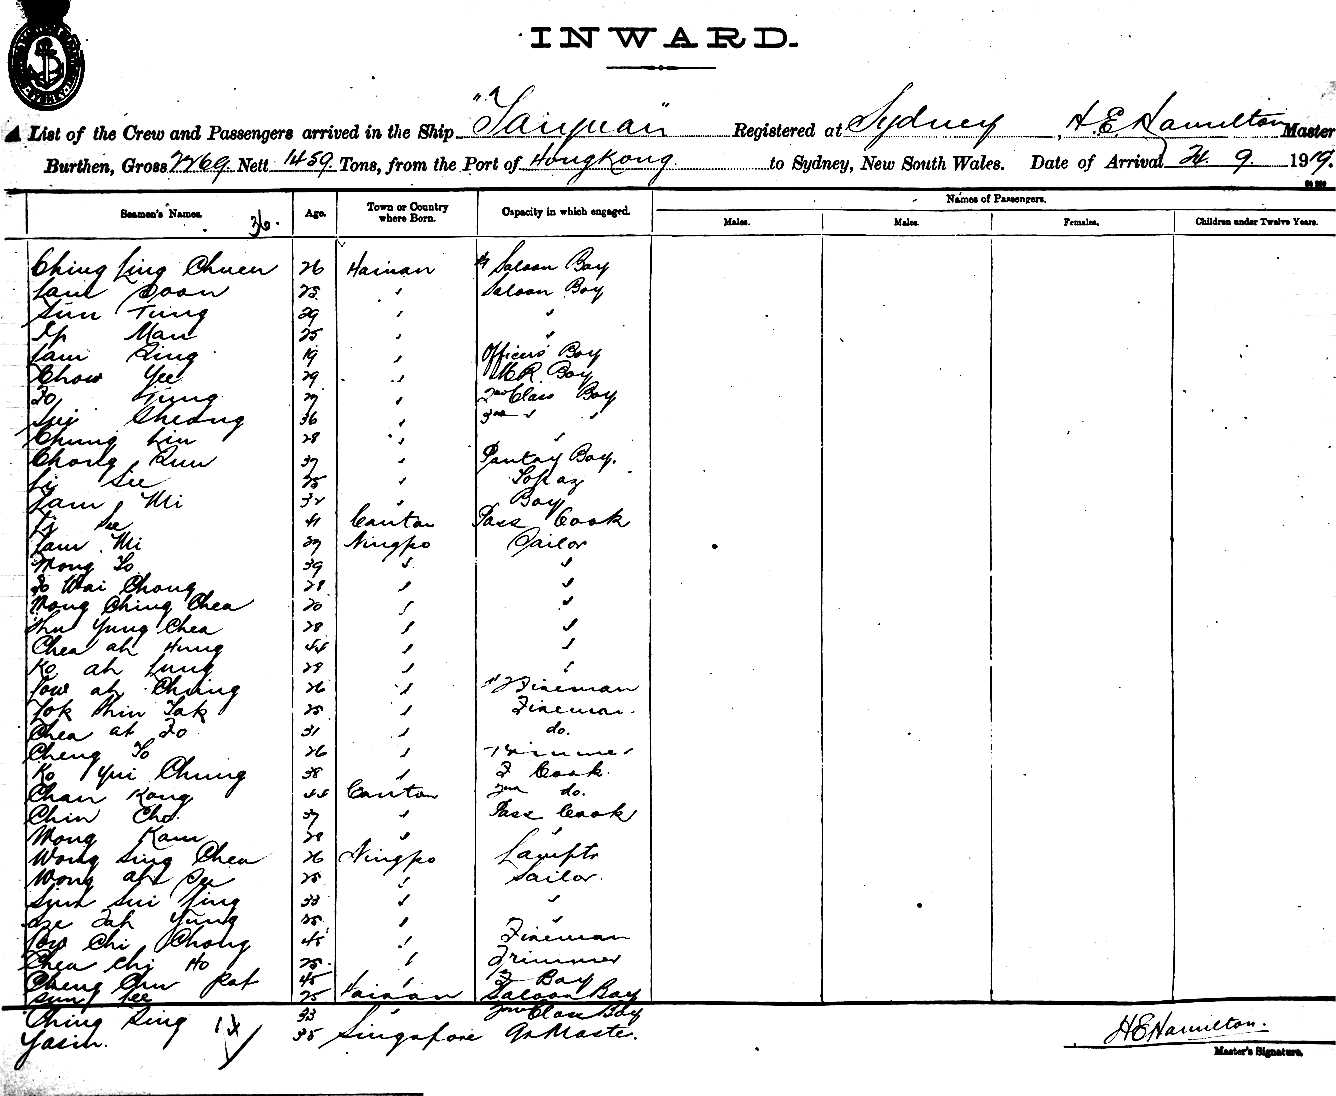 INWARD.
List of the Crew and Passengers arrived in the Ship "Taiyuan" Registered at Sydney, H.E. Hamilton Master
Burthen, Gross 2269. Nett 1459. Tons, from the Port of Hongkong. to Sydney, New South Wales. Date of Arrival 24. 9. 1919.
Seamen's Names. 36. Age. Town or Country where Born. Capacity in which engaged. Names of Passengers.
Males. Males. Females. Children under Twelve Years.
Ching Ling Chuen 26 Hainan Saloon Boy
Lam Soon 25 " Saloon Boy
Sun Tung 29 " "
Ip Man 25 " "
Lam King 19 " Officers Boy
Chow Yee 29 " M.R. Boy
Fo Tung 27 " 2nd Class Boy
Cheong 36 " " "
Chung Lin 28 " "
Chong Kun 37 " Pantry Boy.
Li See 25 " Topaz
Lam Mi 32 " Boy
Li See 41 Canton Pass Cook
Lam Mi 27 Ningpo Sailor
Mong To 39 " "
Fo Wai Chong 28 " "
Mong Ching Chea 20 " "
Yung Chea 28 " "
Chea ah Hung 44 " "
Ko ah Lung 28 " "
Low ah Chung 26 " Fireman
Tak 25 " Fireman.
Chea at Fo 31 " do.
Cheng To 26 " Trimmer
Ko Yui Chung 38 " F Cook.
Chan Kong 44 Canton 2nd do.
Chin Cho. 37 " Pass Cook
Wong Kam 28 " "
Wong Sing Chea 26 Ningpo Lamptr
Wong ah 25 " Sailor.
Sun Sui Ling 33 " "
Sze Tah Yung 25 " "
Low Chi Chong 45 " Fireman
Chea Chi Ho 25. " Trimmer
Cheng Chu Kat 45 " F Boy
Sun Lee 25 Hainan Saloon Boy
Ching King 33 " 2nd Class Boy
Yasin. 35 Singapore Qr Master.
14
H E Hamilton.
Master's Signature.